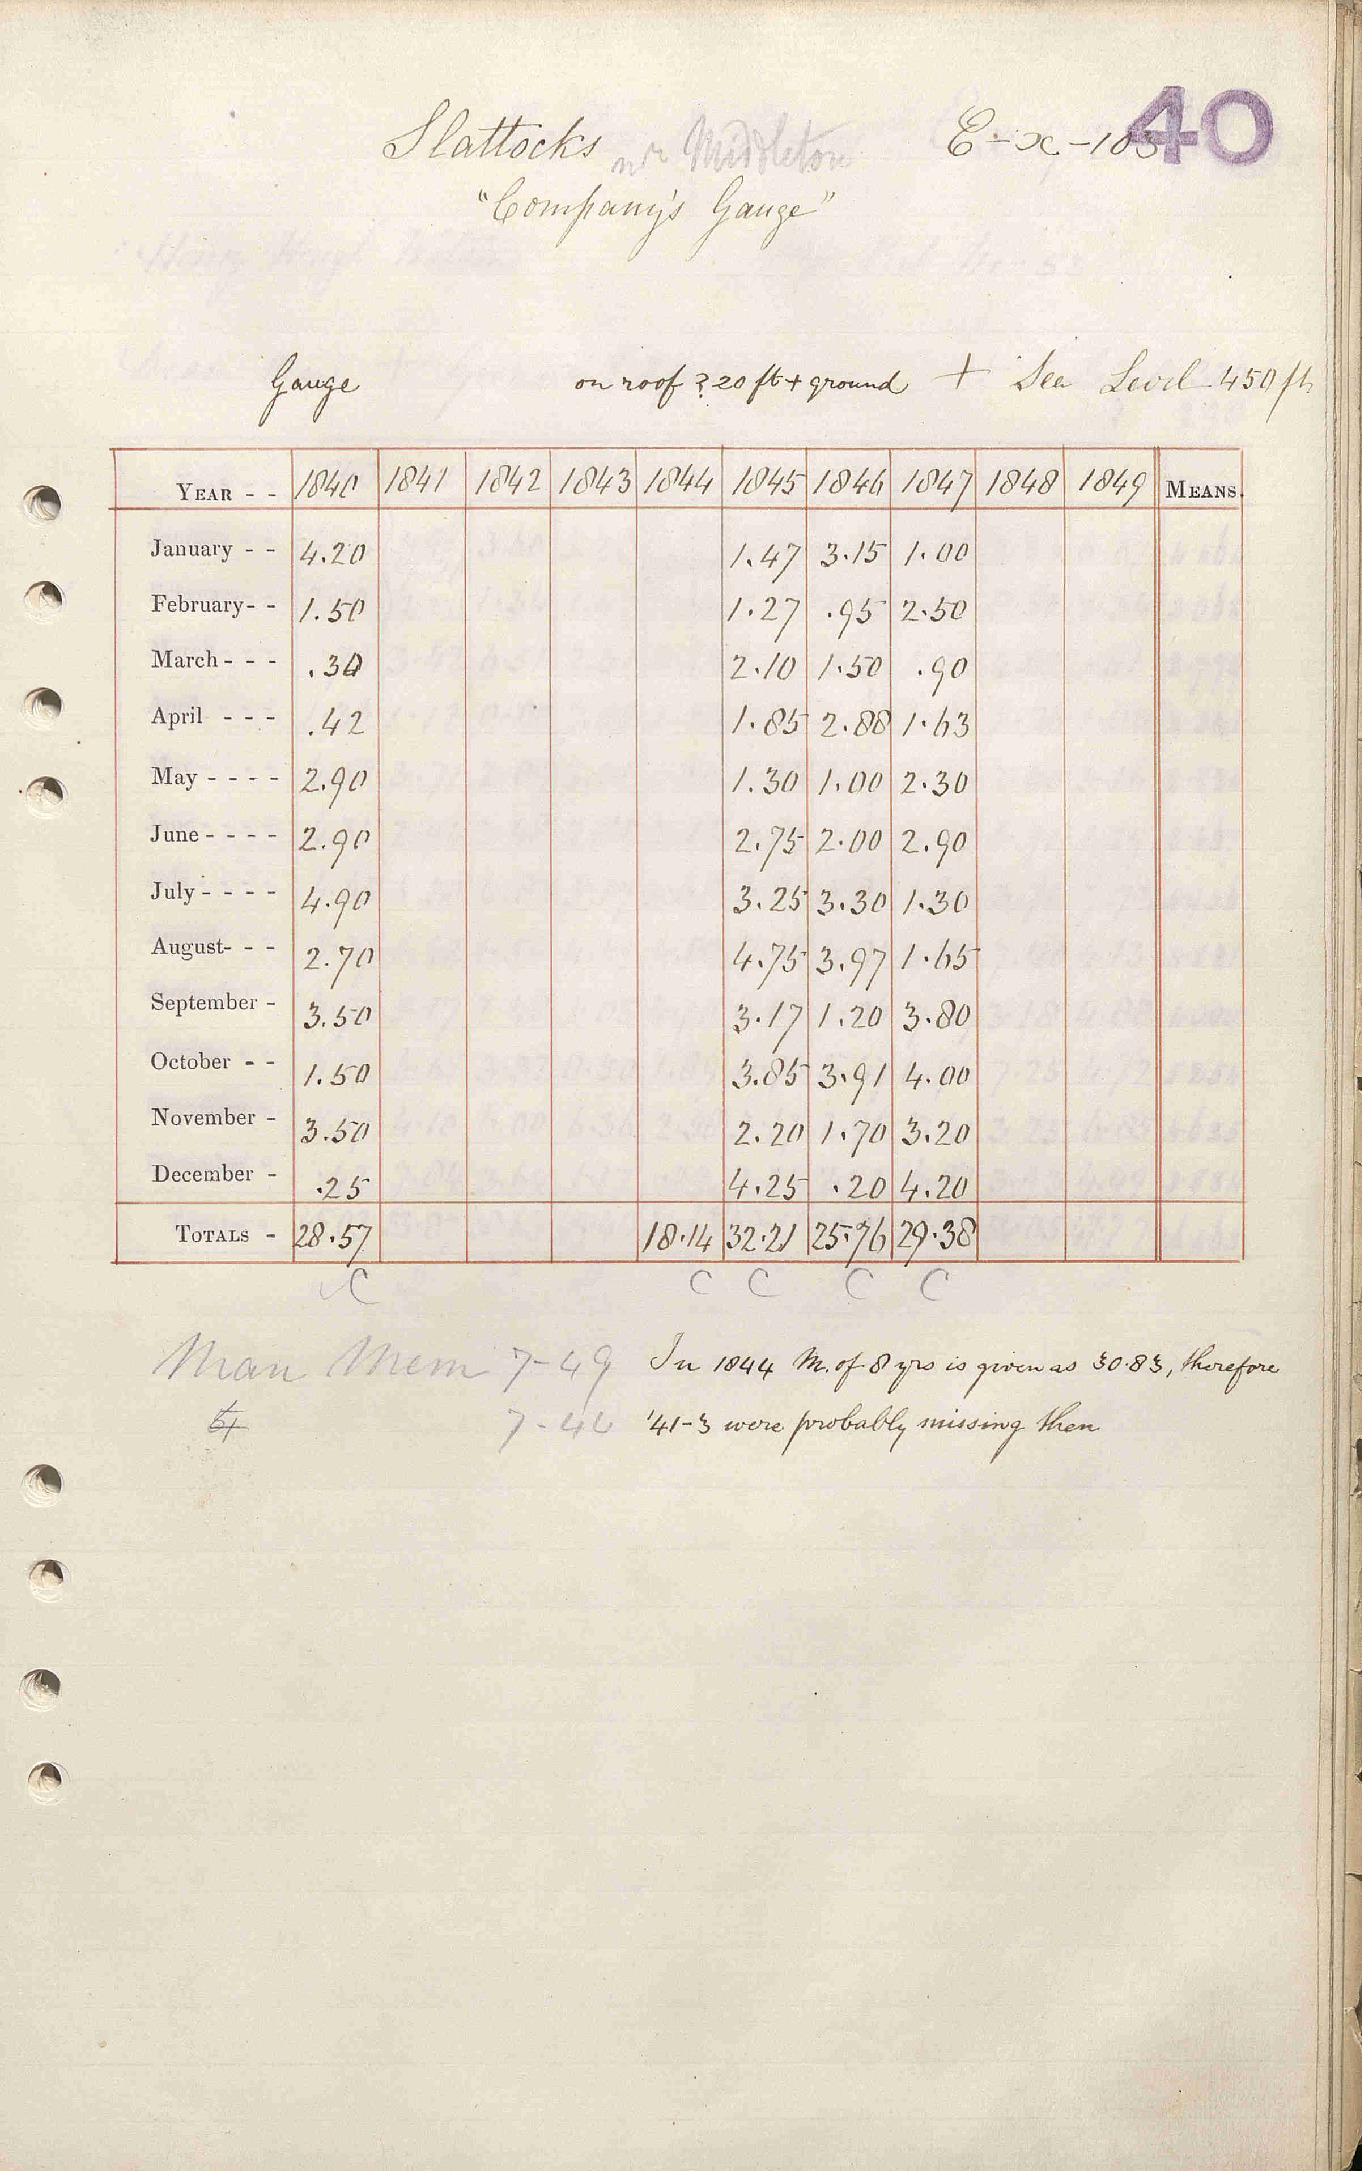 40
Slattocks nr Middleton E-x-103
"Company's Gauge"
Gauge on roof ? 20 ft + ground + Sea Level 450 ft
YEAR - - 1840 1841 1842 1843 1844 1845 1846 1847 1848 1849 MEANS.
January - - 4.20 1.47 3.15 1.00
February- - 1.50 1.27 .95 2.50
March- - - .30 2.10 1.50 .90
April - - - .42 1.85 2.88 1.63
May - - - - 2.90 1.30 1.00 2.30
June- - - - 2.90 2.75 2.00 2.90
July- - - - 4.90 3.25 3.30 1.30
August- - - 2.70 4.75 3.97 1.65
September - 3.50 3.17 1.20 3.80
October - - 1.50 3.85 3.91 4.00
November - 3.50 2.20 1.70 3.20
December - .25 4.25 .20 4.20
TOTALS - 28.57 18.14 32.21 25.76 29.38
C C C C C
Man Mem 7-49 In 1844 M. of 8 yrs is given as 30.83, therefore
7-46 '41-3 were probably missing then